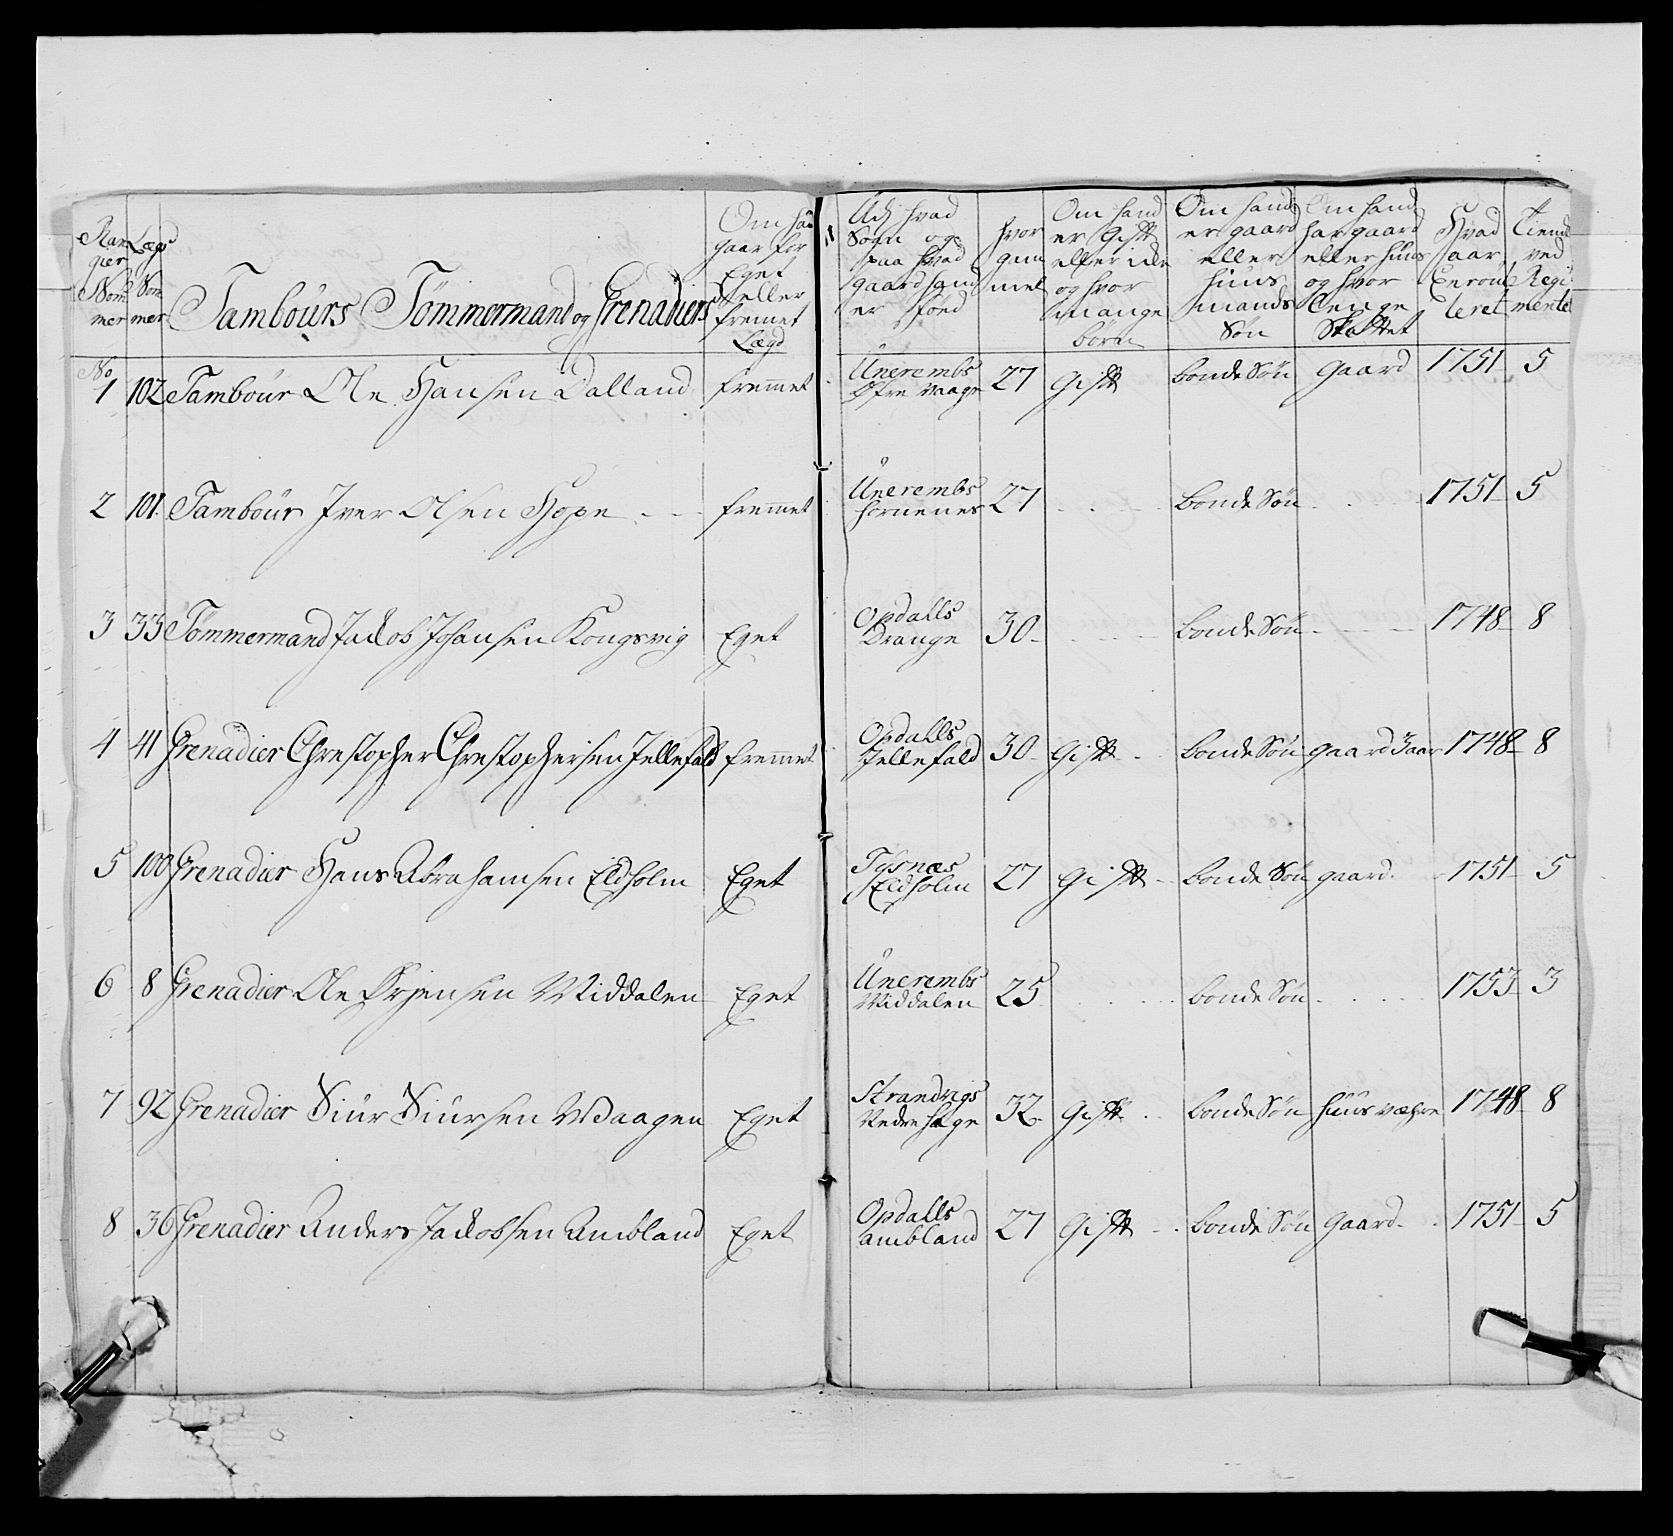 Ran Lægs
ger
Nom Nom
mer mer
Tambours Tømmermand og Grenadiers
Om hand
gaar for
Eget
eller
fremet
Lægd
Udj hvad
Sogn og
paa hvad
gaard hand
er föed
hvor
gam
mel
Om hand
er Gift
eller icke
og hvor
mange
börn
Om hand
er gaard
eller
huus
mands
Søn
Om hand
har gaard
eller huus
og hvor
Lenge
Skattet
Hvad
aar
Enroul
leret
tient
ved
Regi
mentet
No
1 102 Tambour Ole Hansen Dalland fremmet Unerembs Øfre Waage 27 Gift bonde Søn gaard 1751 5
2 101 Tambour Iver Olsen Hope fremmet Unerembs hornenes 27 bonde Søn 1751 5
3 33 Tømmermand Jacob Johansen Kongsvig Eget Opdalls Drange 30 bonde Søn 1748 8
4 41 Grenadier Chrestopher Chrestophersen Jellefald fremmet Opdalls Jellefald 30 Gift bonde Søn gaard 3 aar 1748 8
5 100 Grenadier Hans Abrahamsen Eldholm Eget Tysnæs Eldholm 27 Gift bonde Søn gaard 1751 5
6 8 Grenadier Ole Ørjensen Middalen Eget Unerembs Middalen 25 bonde Søn 1753 3
7 92 Grenadier Siur Siursen Waagen Eget Strandvigs Nedre hage 32 Gift bonde Søn huus væhre 1748 8
8 36 Grenadier Anders Jacobsen Ambland Eget Opdalls ambland 27 Gift bonde Søn Gaard 1751 5